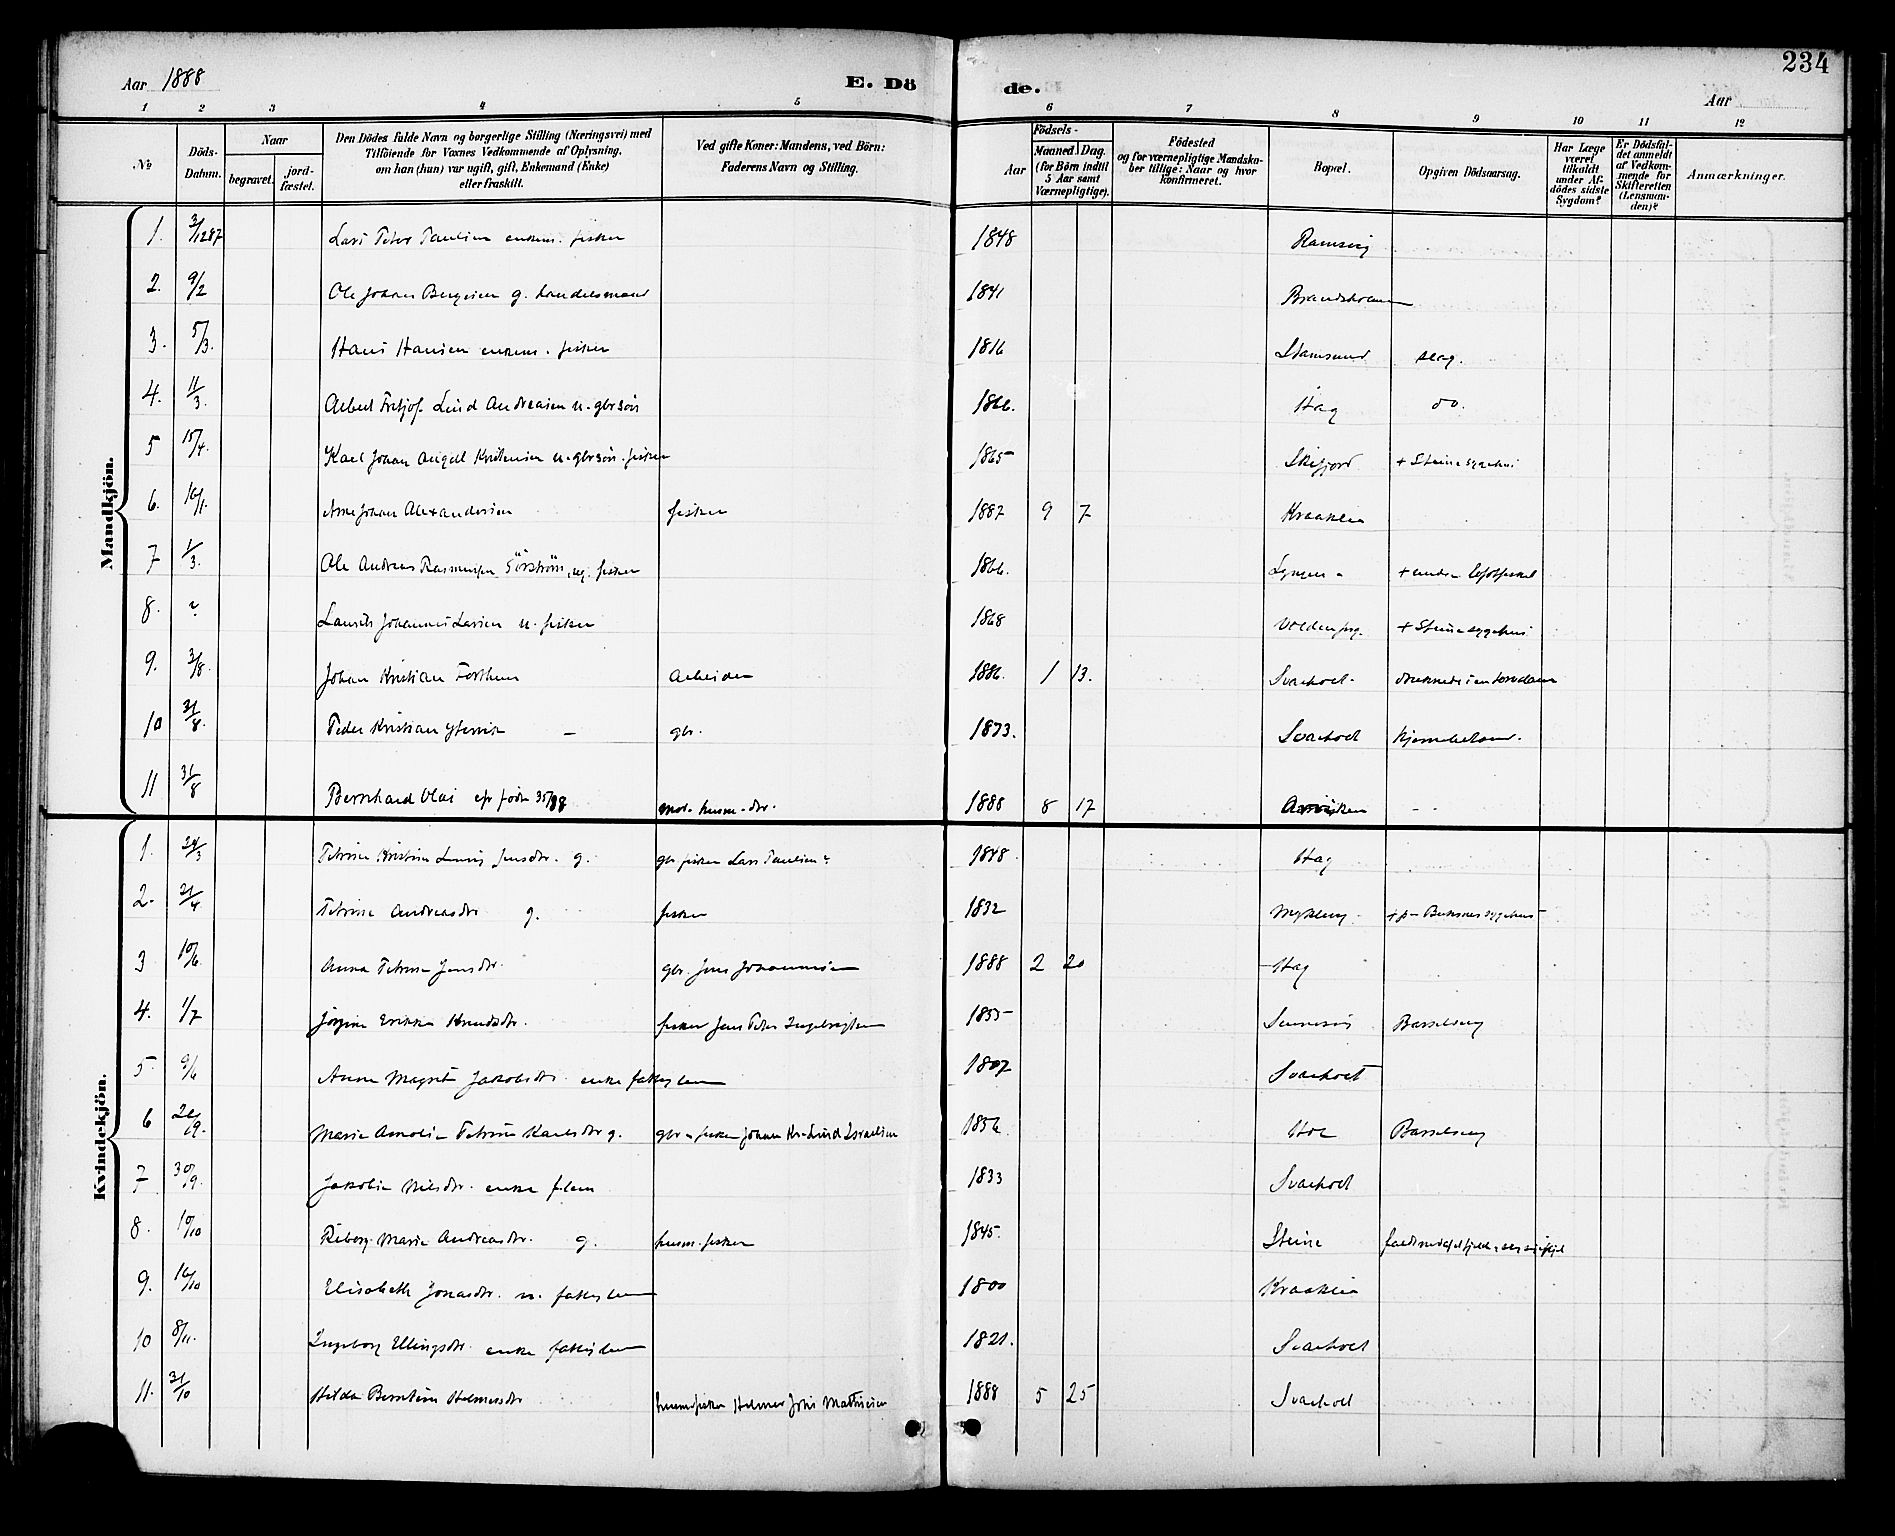 Aar 1888
E. Döde.
Aar
234
1 2 3 4 5 6 7 8 9 10 11 12
№
Döds-Datum.
Naar
begravet.
jordfæstet.
Den Dödes fulde Navn og borgerlige Stilling (Næringsvei) med
Tilföiende for Voxnes Vedkommende af Oplysning,
om han (hun) var ugift, gift, Enkemand (Enke)
eller fraskilt.
Ved gifte Koner: Mandens, ved Börn:
Faderens Navn og Stilling.
Födsels-
Aar
Maaned. Dag.
(for Börn indtil
5 Aar samt
Værnepligtige).
Födested
og for værnepligtige Mandska-
ber tillige: Naar og hvor
konfirmeret.
Bopæl.
Opgiven Dödsaarsag.
Har Læge
været
tilkaldt
under Af-
dödes sidste
Sygdom?
Er Dödsfal-
det anmeldt
af Vedkom-
mende for
Skifteretten
(Lensman-
den)?
Anmærkninger.
Mandkjön.
1. 3/12 87 Lars Peter Paulsen enkem. fisker 1848 Ramsvig
2. 9/2 Ole Johan Bergesen g. handelsmand 1841 Brandsholmen
3. 5/3. Hans Hansen enkem. fisker 1816 Stamsund slag.
4. 11/3. Albert Fritjof Lind Andreasen u. gbrsön 1866. Hag do.
5 15/4. Karl Johan Angell Kristensen u. gbrsön. fisker 1865 Skifjord + Steine sygehus
6. 16/1. Arne Johan Alexandersen fisker 1887 9 7 Kraaklia
7 1/3. Ole Andreas Rasmussen Sörström, ug. fisker 1866. Lyngen
8. ? Laurits Johannes Larsen u. fisker 1868 + Steine sygehus
9. 3/8. Johan Kristian Forthun Arbeider 1886. 1 13. Svarholt
10 31/8. Peder Kristian gbr. 1873. Svarholt
11 31/8 Bernhard Olai 1888 8 17
Kvindekjön.
1. 24/3 Petrine Kristine Jensdtr. g. gbr fisker Lars Paulsen 1848 Hag
2. 21/4 Petrine Andreasdtr g. fisker 1832
3 10/6. Anna Petrine Jensdtr. gbr. Jens Johannesen 1888 2 20 Hag
4. 1/7 Jörgine Erikka Knudsdtr. fisker Jens Peter Ingebrigtsen 1855 Barselseng
5 9/6 Anne Magret Jakobsdtr enke fattiglem 1807 Svarholt
6 26/9. Marie Amalie Petrine Karlsdtr g. gbr - fisker Johan Kr. Lind Israelsen 1856 Hol Barselseng
7 30/9. Jakobia Nilsdtr. enke f.lem 1833 Svarholt
8. 10/10 Marie Andreasdtr. g. husm. fisker 1845. Steine
9. 16/10 Elisabeth Jonasdtr. u. fattiglem 1800 Kraaklia
10 8/11. Ingeborg Ellingsdtr. enke fattiglem 1821. Svarholt
11. 31/10 Hilda Berntine Helmersdtr Helmer Mathisen 1888 5 25 Svarholt